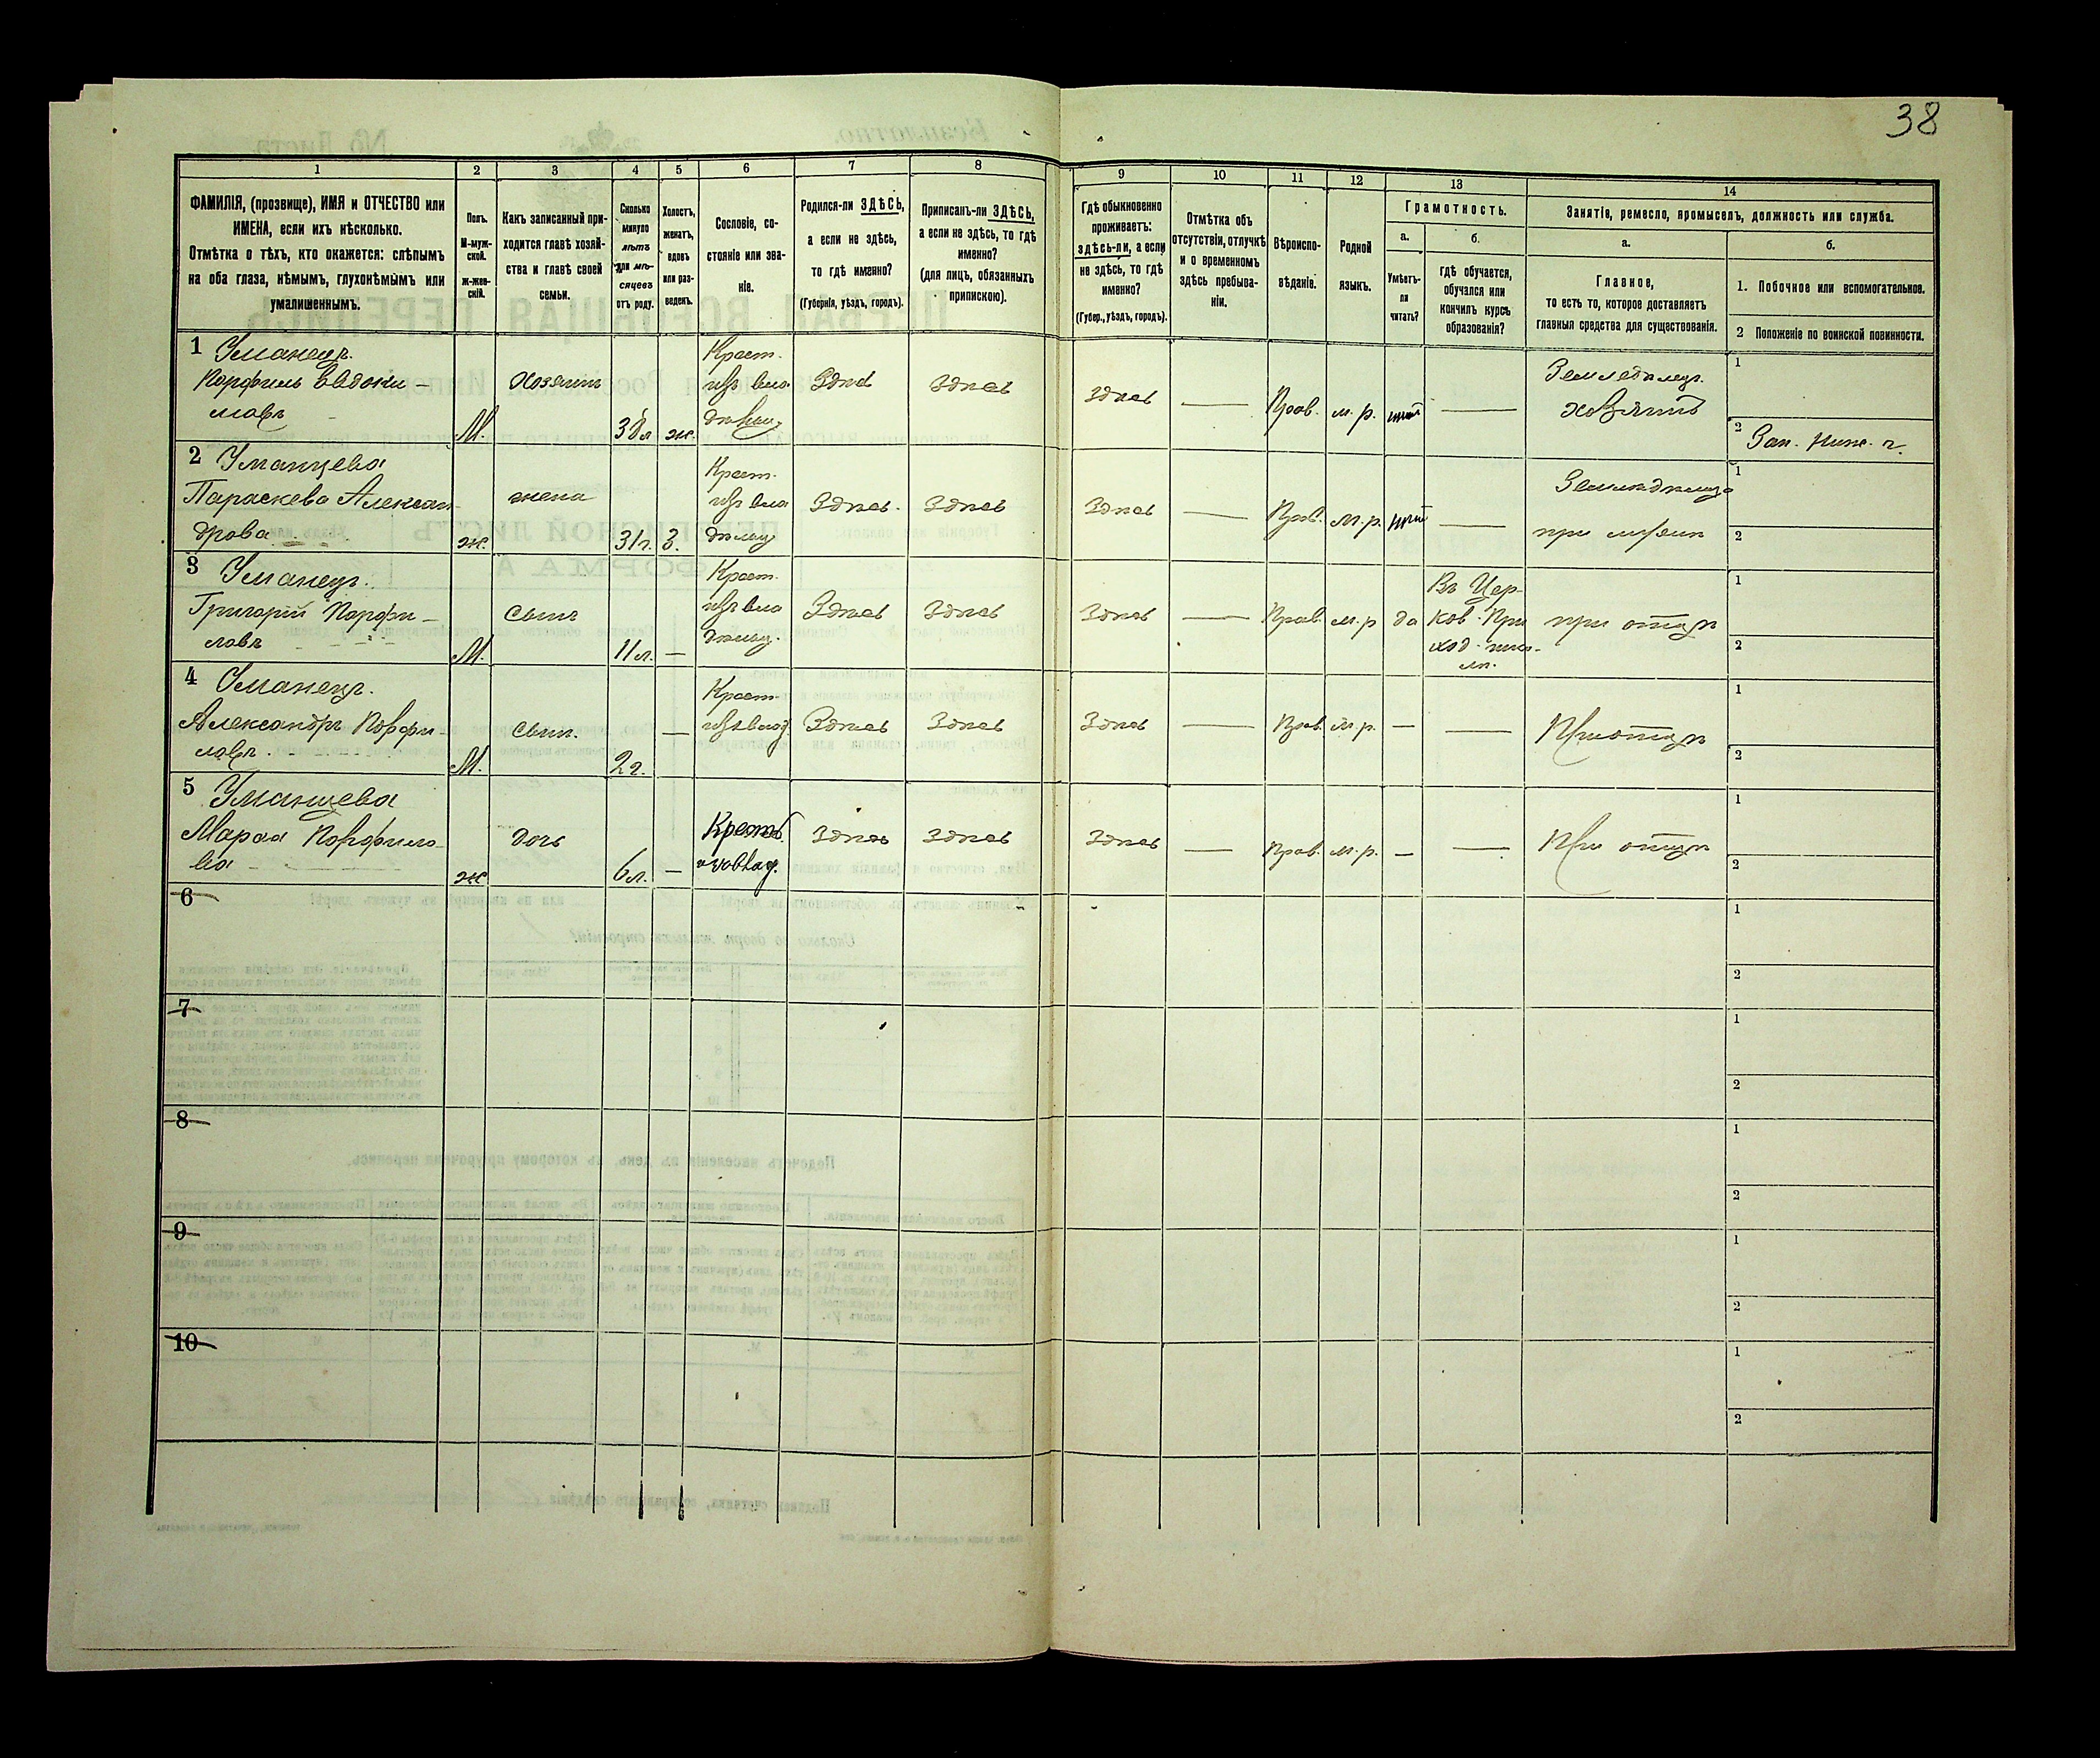 38
1 2 3 4 5 6 7 8 9 10 11 12 13 14
ФАМИЛІЯ, (прозвище), ИМЯ и ОТЧЕСТВО или
ИМЕНА, если ихъ нѣсколько.
Отмѣтка о тѣхъ, кто окажется: слѣпымъ
на оба глаза, нѣмымъ, глухонѣмымъ или
умалишеннымъ.
Полъ.
М-муж-
ской.
ж-жен-
скій.
Какъ записанный при-
ходится главѣ хозяй-
ства и главѣ своей
семьи.
Сколько
минуло
лѣтъ
или мѣ-
сяцевъ
отъ роду.
Холостъ,
женатъ,
вдовъ
или раз-
веденъ.
Сословіе, со-
стояніе или зва-
ніе.
Родился-ли ЗДѢСЬ,
а если не здѣсь,
то гдѣ именно?
(Губернія, уѣздъ, городъ).
Приписанъ-ли ЗДѢСЬ,
а если не здѣсь, то гдѣ
именно?
(для лицъ, обязанныхъ
припискою).
Гдѣ обыкновенно
проживаетъ:
здѣсь-ли, а если
не здѣсь, то гдѣ
именно?
(Губер., уѣздъ, городъ).
Отмѣтка объ
отсутствіи, отлучкѣ
и о временномъ
здѣсь пребыва-
ніи.
Вѣроиспо-
вѣданіе.
Родной
языкъ.
Грамотность.
а.
Умѣетъ-
ли
читать?
б.
гдѣ обучается,
обучался или
кончилъ курсъ
образованія?
Занятіе, ремесло, промыселъ, должность или служба.
а.
Главное,
то есть то, которое доставляетъ
главныя средства для существованія.
б.
1. Побочное или вспомогательное.
2 Положеніе по воинской повинности.
1 Уманецъ
Порфилъ Евдоки-
мовъ
М.
хозяинъ
ж.
Крест.
изъ вла
дѣльц.
Здѣсь
Здѣсь
Здѣсь
—
Прав.
м. р.
нѣтъ
—
Земледѣлецъ.
хозяинъ
1
2
2 Уманцева
Параскева Алексан-
дрова
ж.
жена
31 г.
З.
Крест.
изъ вла
дѣльц
Здѣсь.
Здѣсь
Здѣсь
—
Прав.
м. р.
нѣтъ
—
при мужѣ
1
2
3 Уманецъ.
Григорій Порфи-
ловъ
М.
сынъ
11 л.
—
Крест.
изъ вла
дѣльц.
Здѣсь
Здѣсь
Здѣсь
—
Прав.
м. р
да
Въ Цер-
ков. При
ход. шко-
лѣ.
при отцѣ
1
2
4 Уманецъ.
Александръ Порфи-
ловъ.
М.
сынъ.
2 г.
—
Крест.
изъ влад.
Здѣсь
Здѣсь
Здѣсь
—
Прав.
м. р.
—
—
При отцѣ
1
2
5 Уманцева
Марѳа Порфило-
ва
ж
дочь
6 л.
—
Крест.
изъ влад.
Здѣсь
Здѣсь
Здѣсь
—
Прав.
м. р.
—
—
При отцѣ
1
2
6
1
2
7
1
2
8
1
2
9
1
2
10
1
2